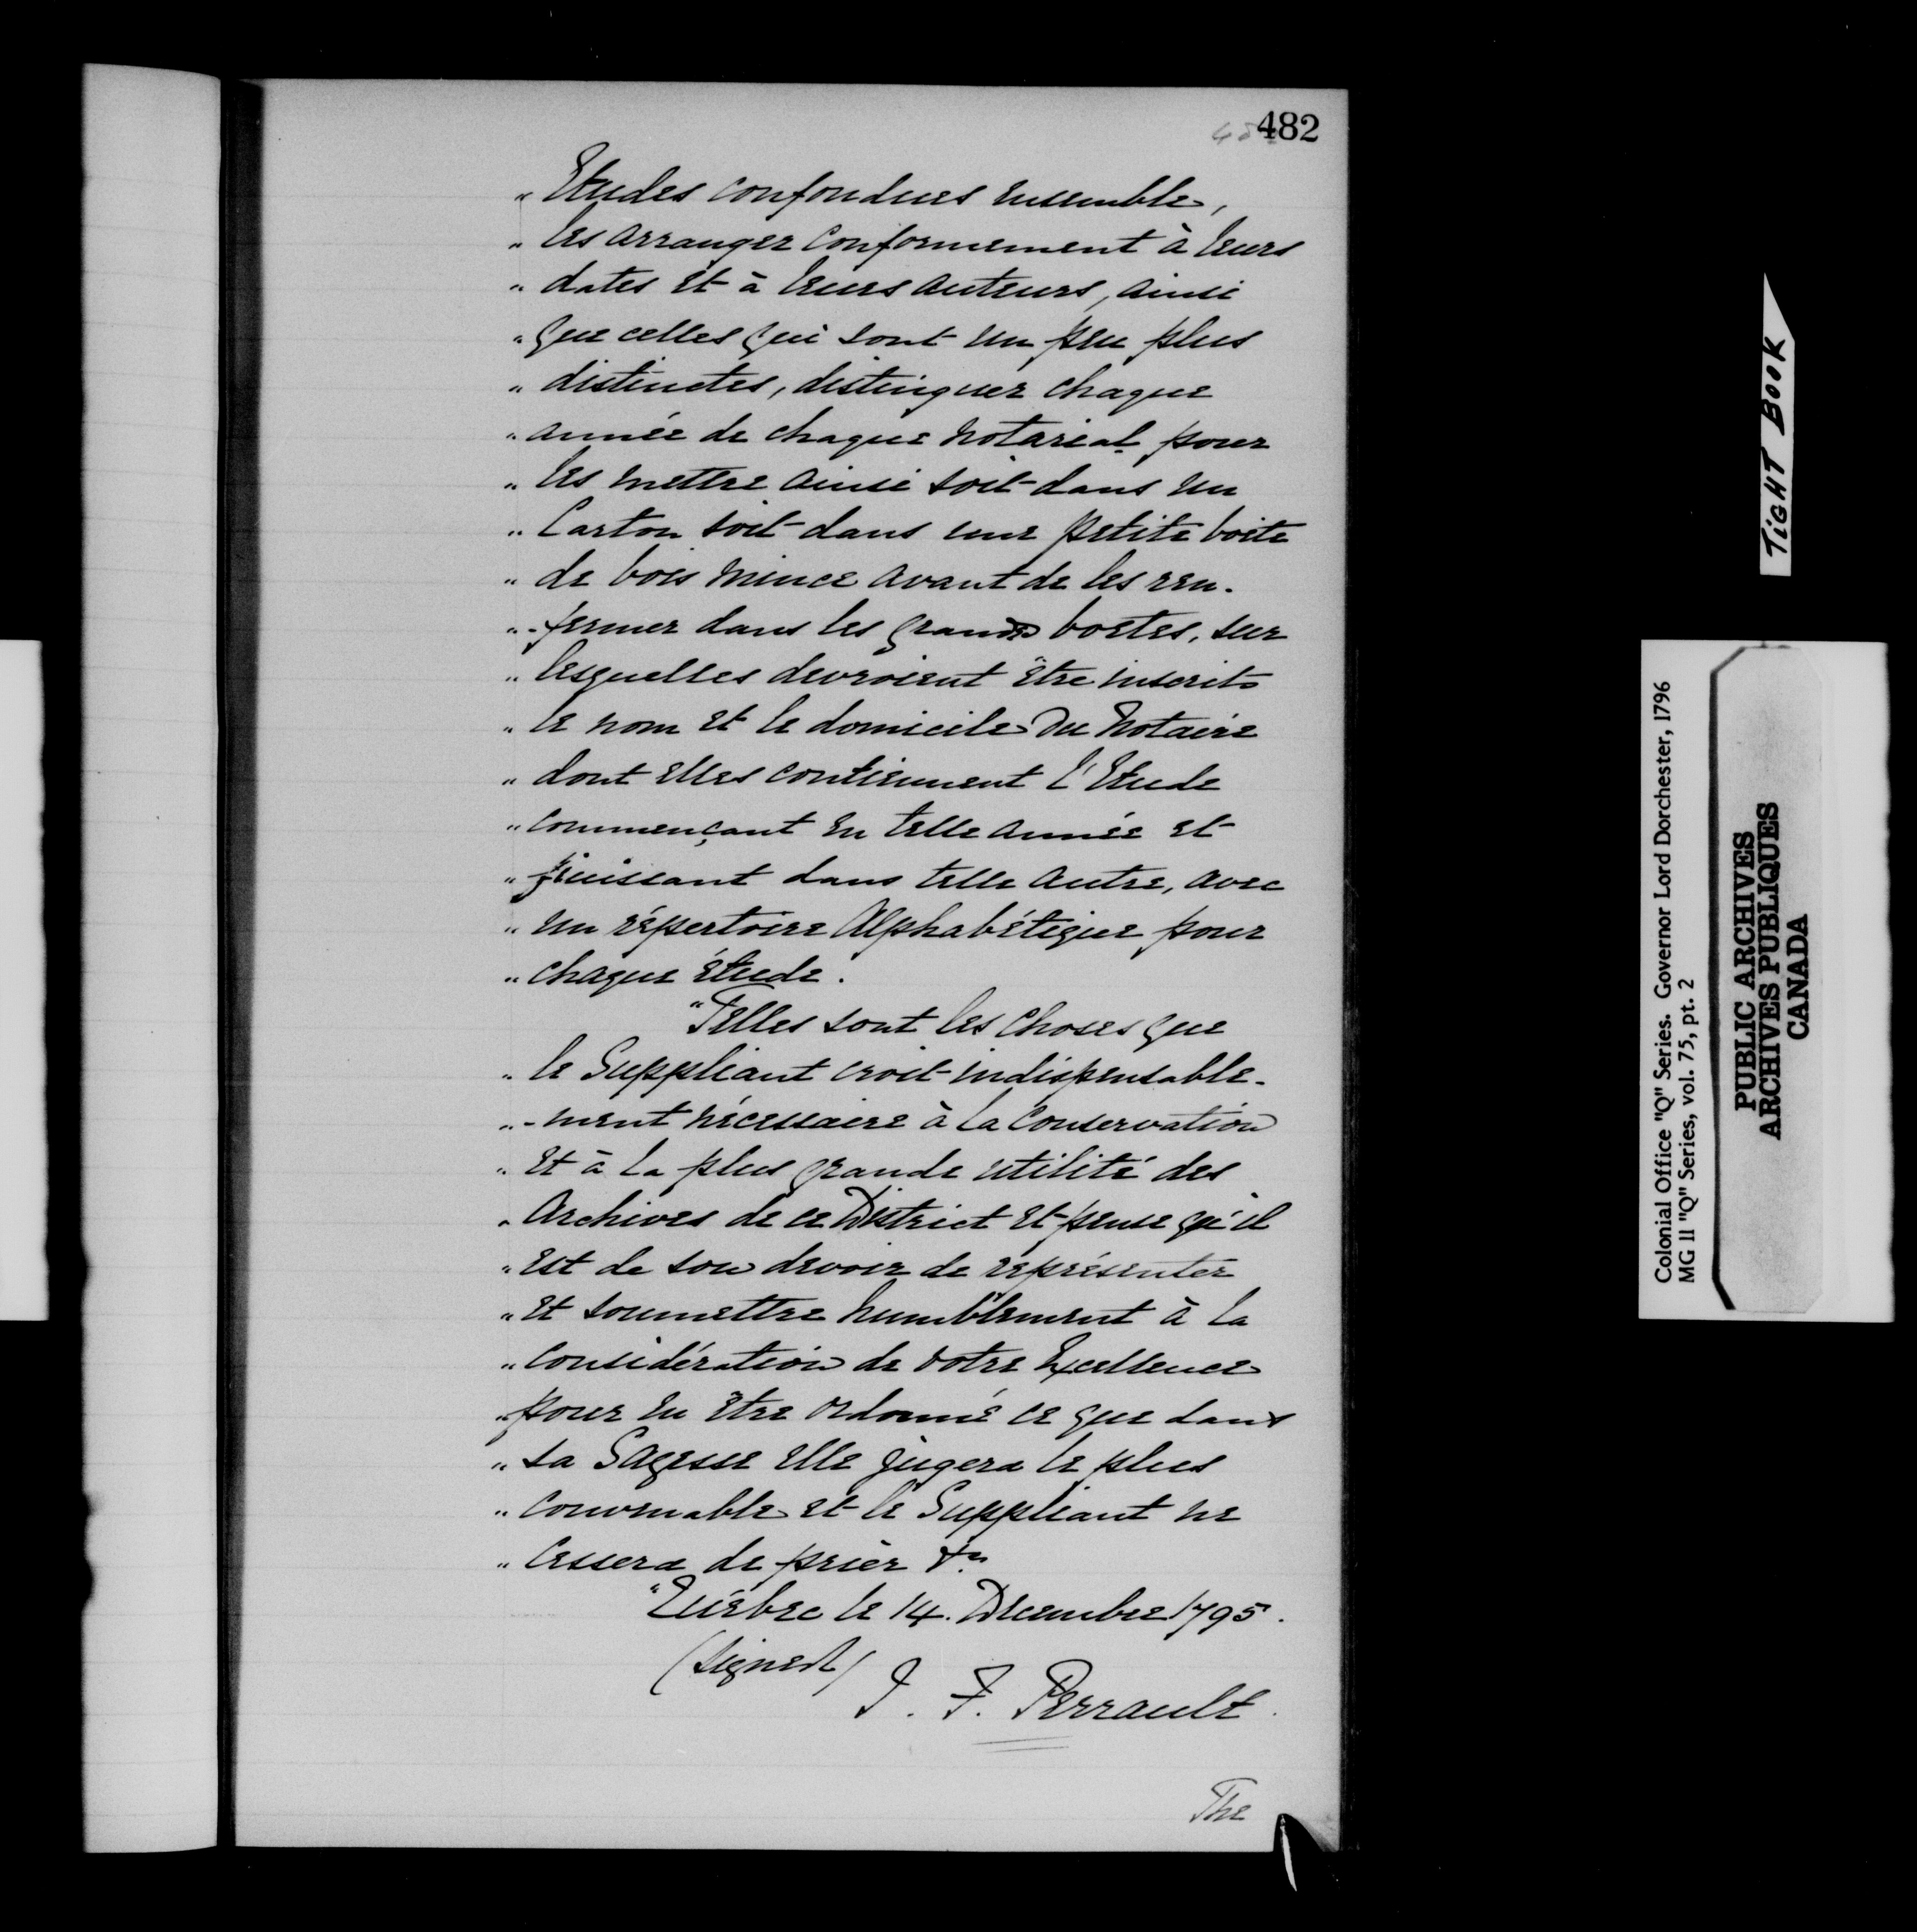 482
" Etudes confondues ensemble,
" les arranger conformement à leurs
" dates et à leurs auteurs, ainsi
" que celles qui sont un peu plus
" distinctes, distinguer chaque
" année de chaque notariat pour
" les mettre ainsi soit dans un
" Carton soit dans une petite boite
" de bois mince avant de les ren-
" -fermer dans les grands boetes, sur
" lesquelles devroient être inscrits
" le nom et le domicile du Notaire
" dont elles contiennent l'Etude
" commençant en telle année et
" finissant dans telle autre, avec
" un répertoire Alphabétique pour
" chaque étude.
" Telles sont les choses que
" le Suppliant croit indispensable-
" -ment nécessaire à la Conservation
" et à la plus grande utilité des
" Archives de ce District et pense qu'il
" est de son devoir de représenter
" et soumettre humblement à la
" considération de votre Excellence
" pour en être ordonné ce que dans
" sa Sagesse elle jugera le plus
" convenable et le Suppliant ne
" Cessera de prier &a
" Québec le 14. Decembre 1795.
(signed)
J. F. Perrault.
The
TIGHT BOOK
Colonial Office "Q" Series. Governor Lord Dorchester, 1796
MG 11 "Q" Series, vol. 75, pt. 2
PUBLIC ARCHIVES
ARCHIVES PUBLIQUES
CANADA